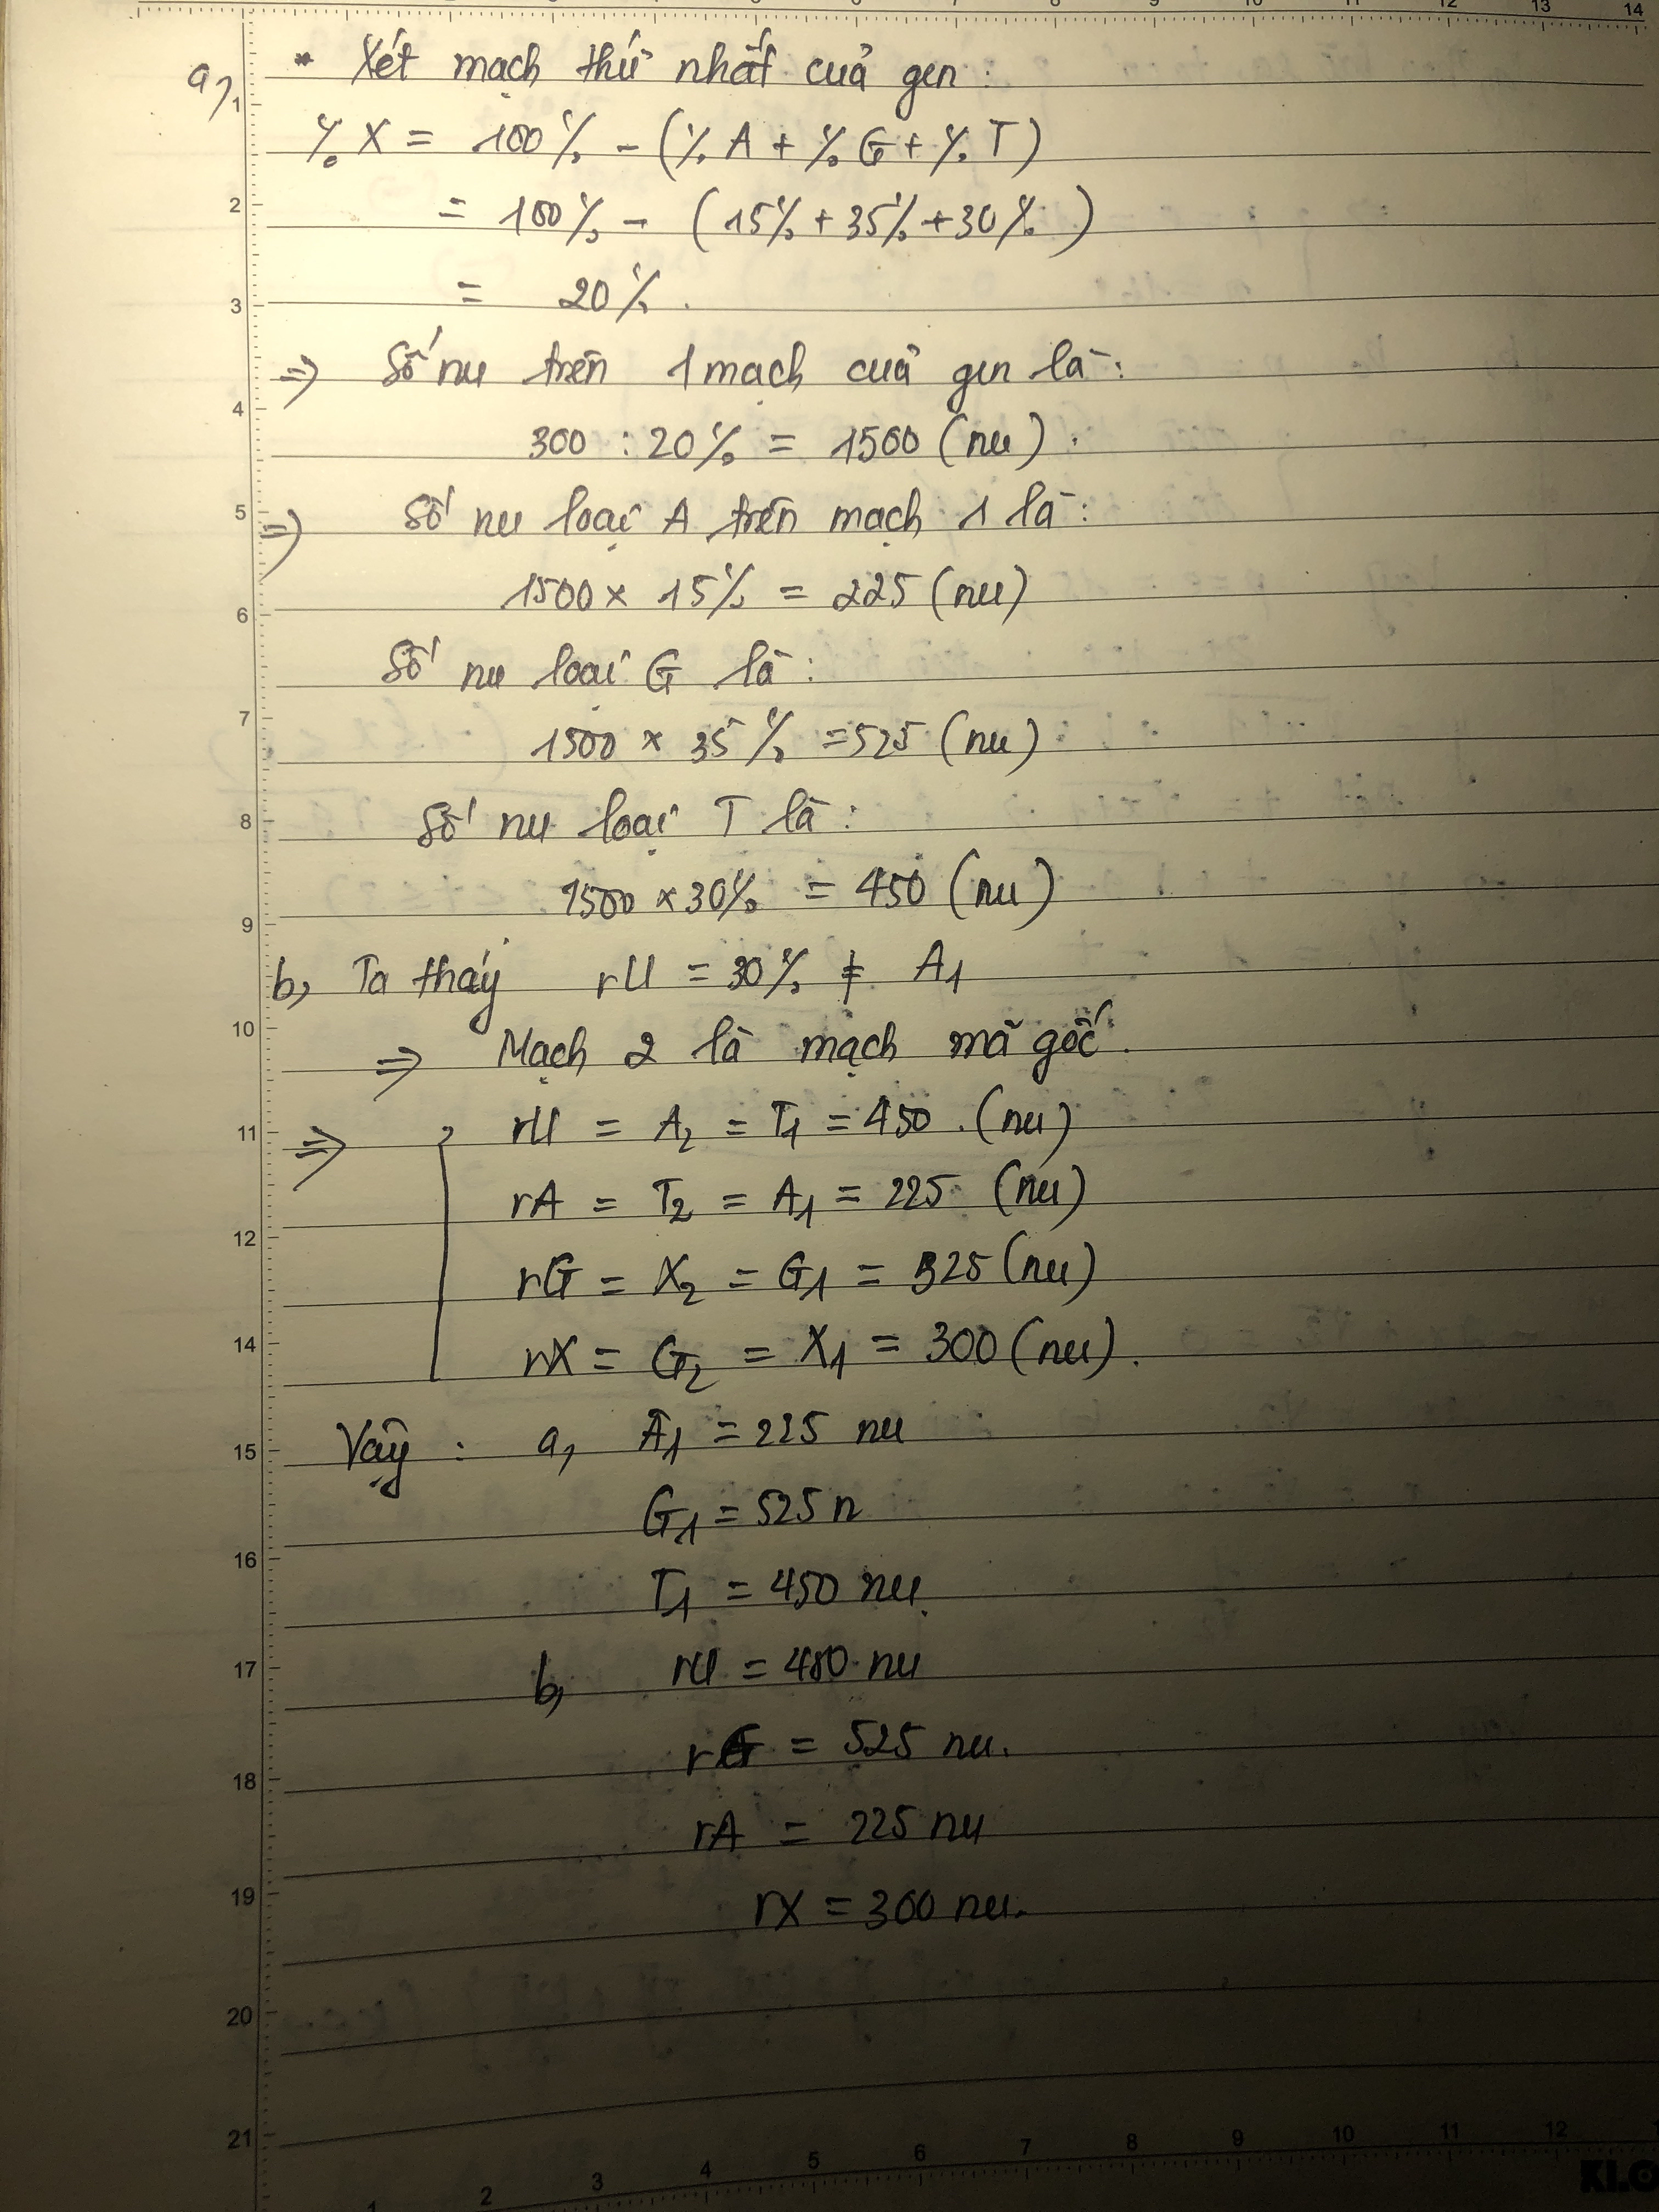 a, * Xét mạch thứ nhất của gen :
% X = 100% - (% A + % G + % T)
= 100% - (15% + 35% + 30%)
= 20%.
=> Số nu trên 1 mạch của gen là :
300 : 20% = 1500 (nu).
=> Số nu loại A trên mạch 1 là :
1500 x 15% = 225 (nu)
Số nu loại G là :
1500 x 35% = 525 (nu)
Số nu loại T là :
1500 x 30% = 450 (nu)
b, Ta thấy rU = 30% ≠ A1
=> Mạch 2 là mạch mã gốc.
=> rU = A2 = T1 = 450. (nu)
rA = T2 = A1 = 225 (nu)
rG = X2 = G1 = 525 (nu)
rX = G2 = X1 = 300 (nu).
Vậy : a, A1 = 225 nu
G1 = 525 n
T1 = 450 nu.
b, rU = 450 nu
rG = 525 nu.
rA = 225 nu
rX = 300 nu.